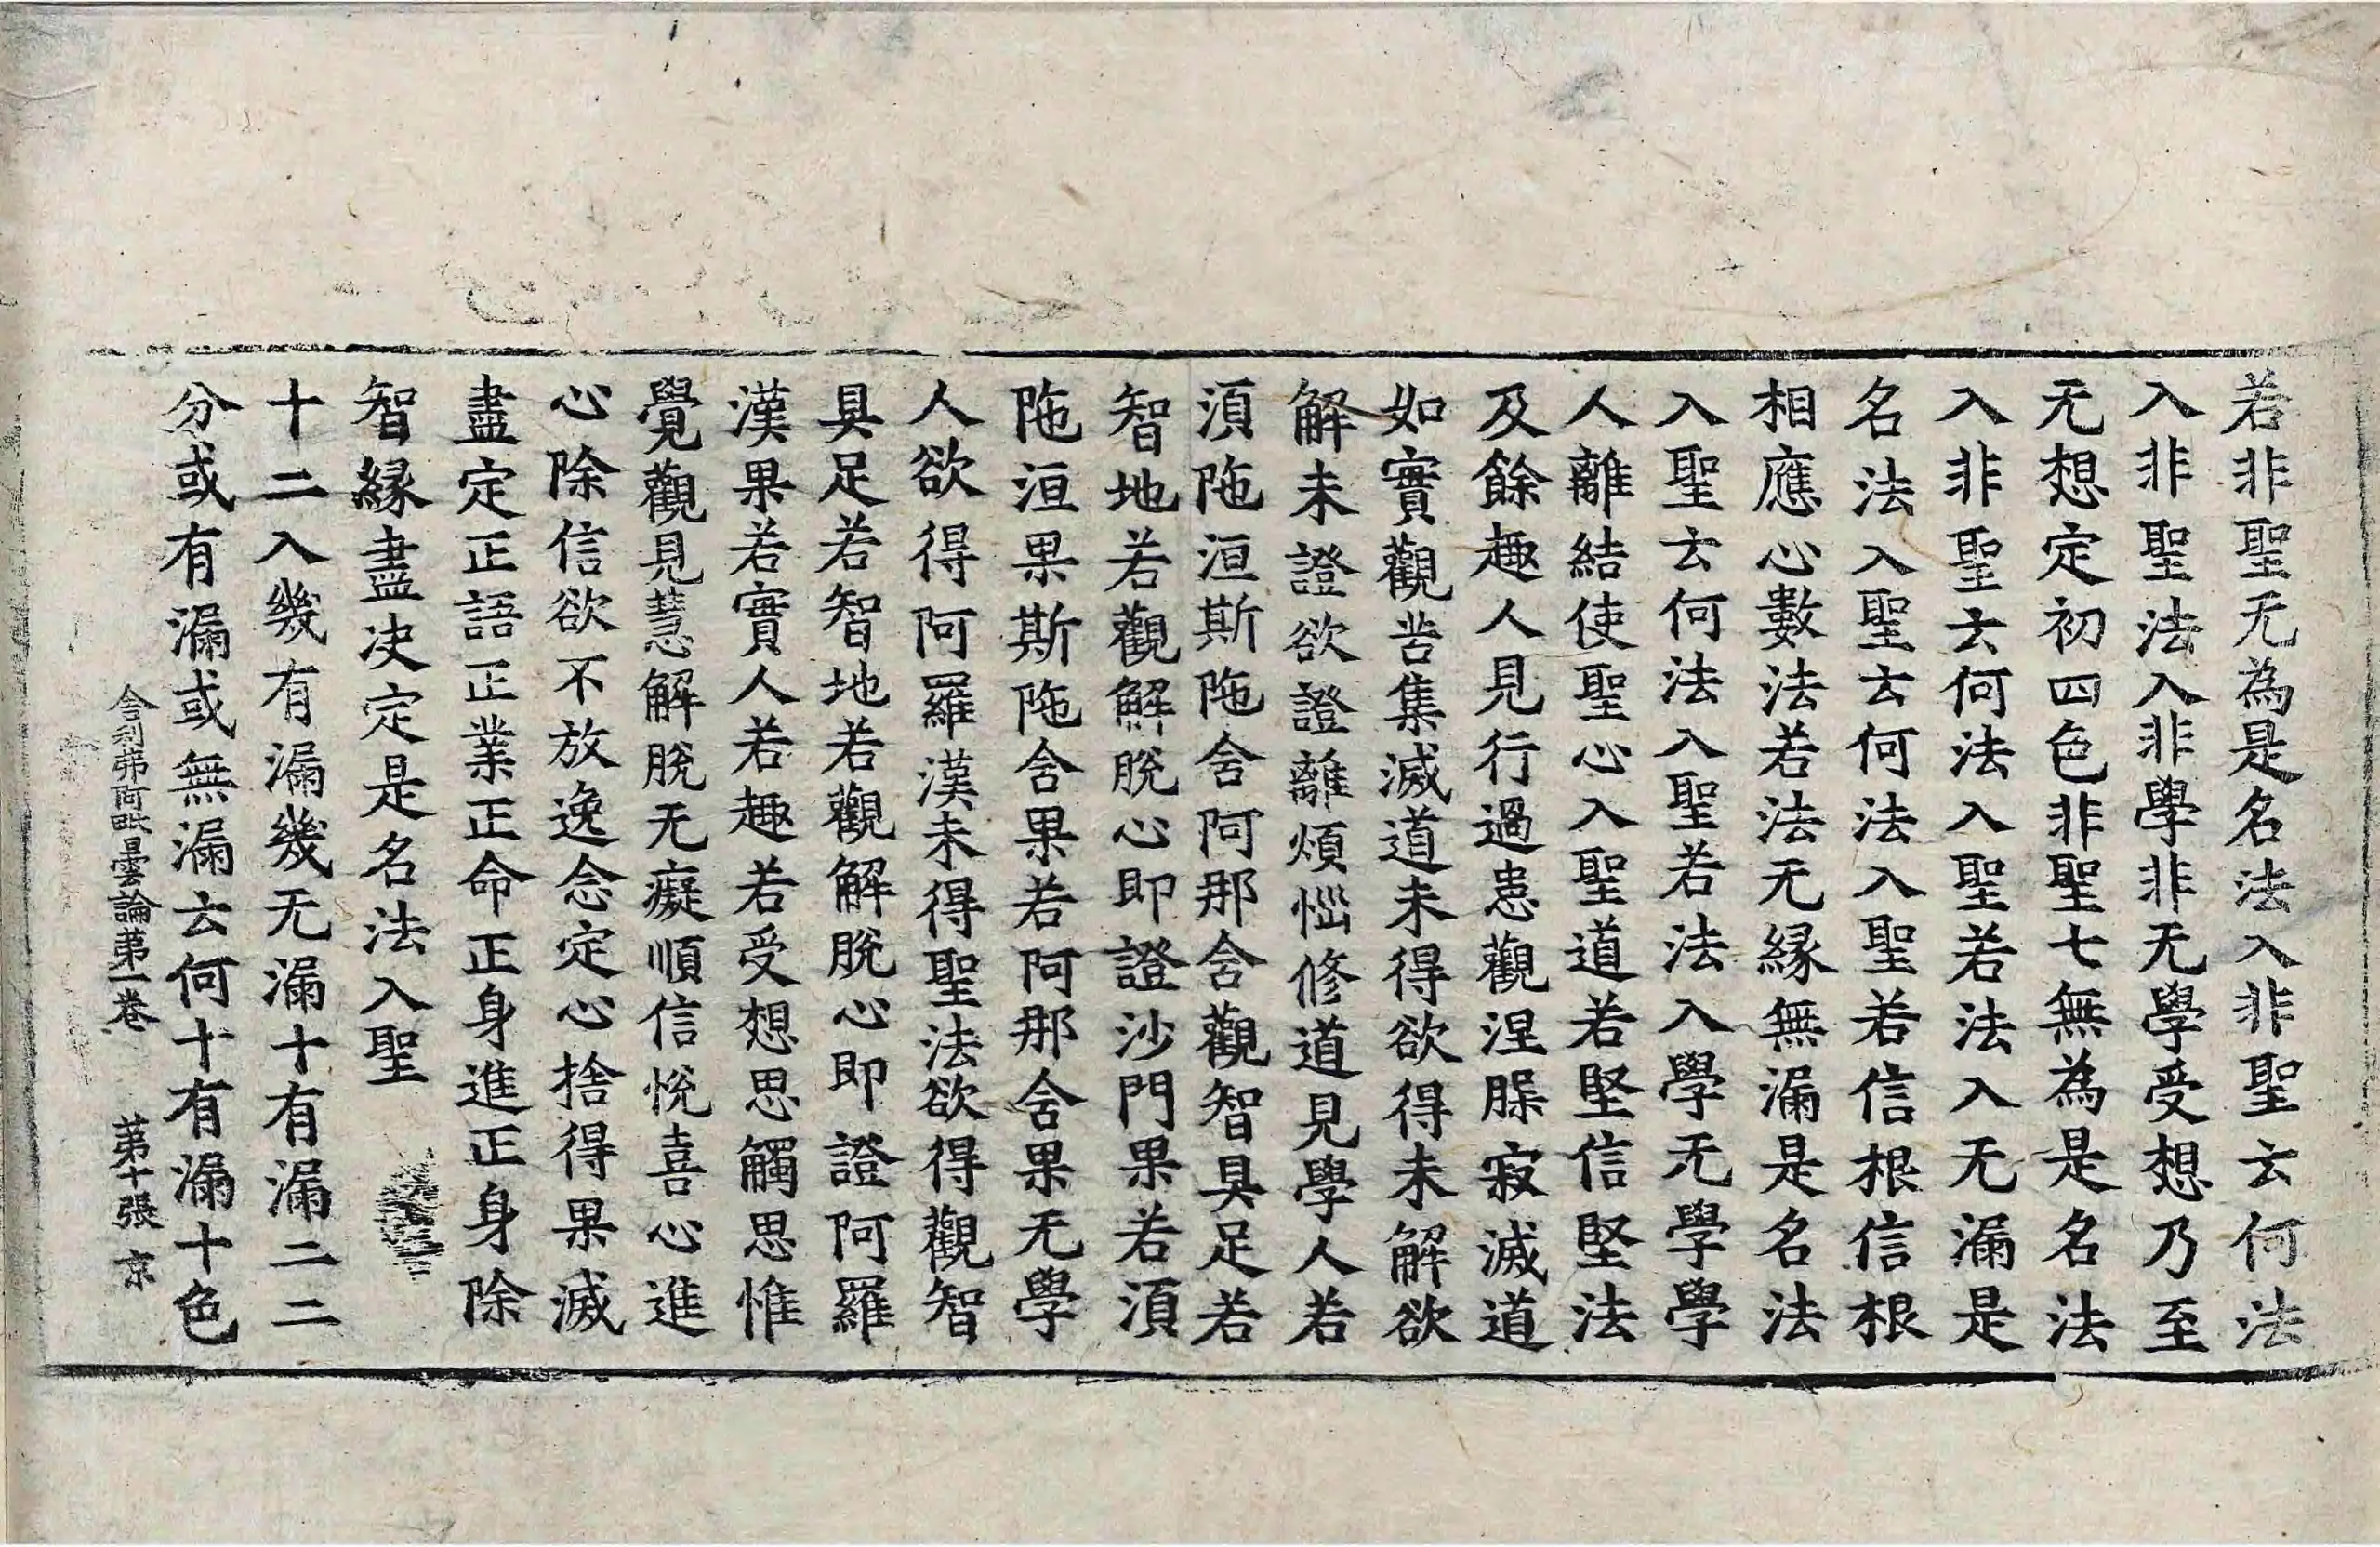 若非聖无為是名法入非聖云何法
入非聖法入非學非无學受想乃至
无想定初四色非聖七無為是名法
入非聖云何法入聖若法入无漏是
名法入聖云何法入聖若信根信根
相應心數法若法无緣無漏是名法
入聖云何法入聖若法入學无學學
人離結使聖心入聖道若堅信堅法
及餘趣人見行過患觀涅槃寂滅道
如實觀苦集滅道未得欲得未解欲
解未證欲證離煩惱修道見學人若
湏陁洹斯陁含阿那含觀智具足若
智地若觀解脫心即證沙門果若湏
陁洹果斯陁含果若阿那含果无學
人欲得阿羅漢未得聖法欲得觀智
具足若智地若觀解脫心即證阿羅
漢果若實人若趣若受想思觸思惟
覺觀見慧解脫无癡順信悅喜心進
心除信欲不放逸念定心捨得果滅
盡定正語正業正命正身進正身除
智緣盡決定是名法入聖
十二入幾有漏幾无漏十有漏二二
分或有漏或無漏云何十有漏十色
舍利弗阿毗曇論第一卷 第十張 京